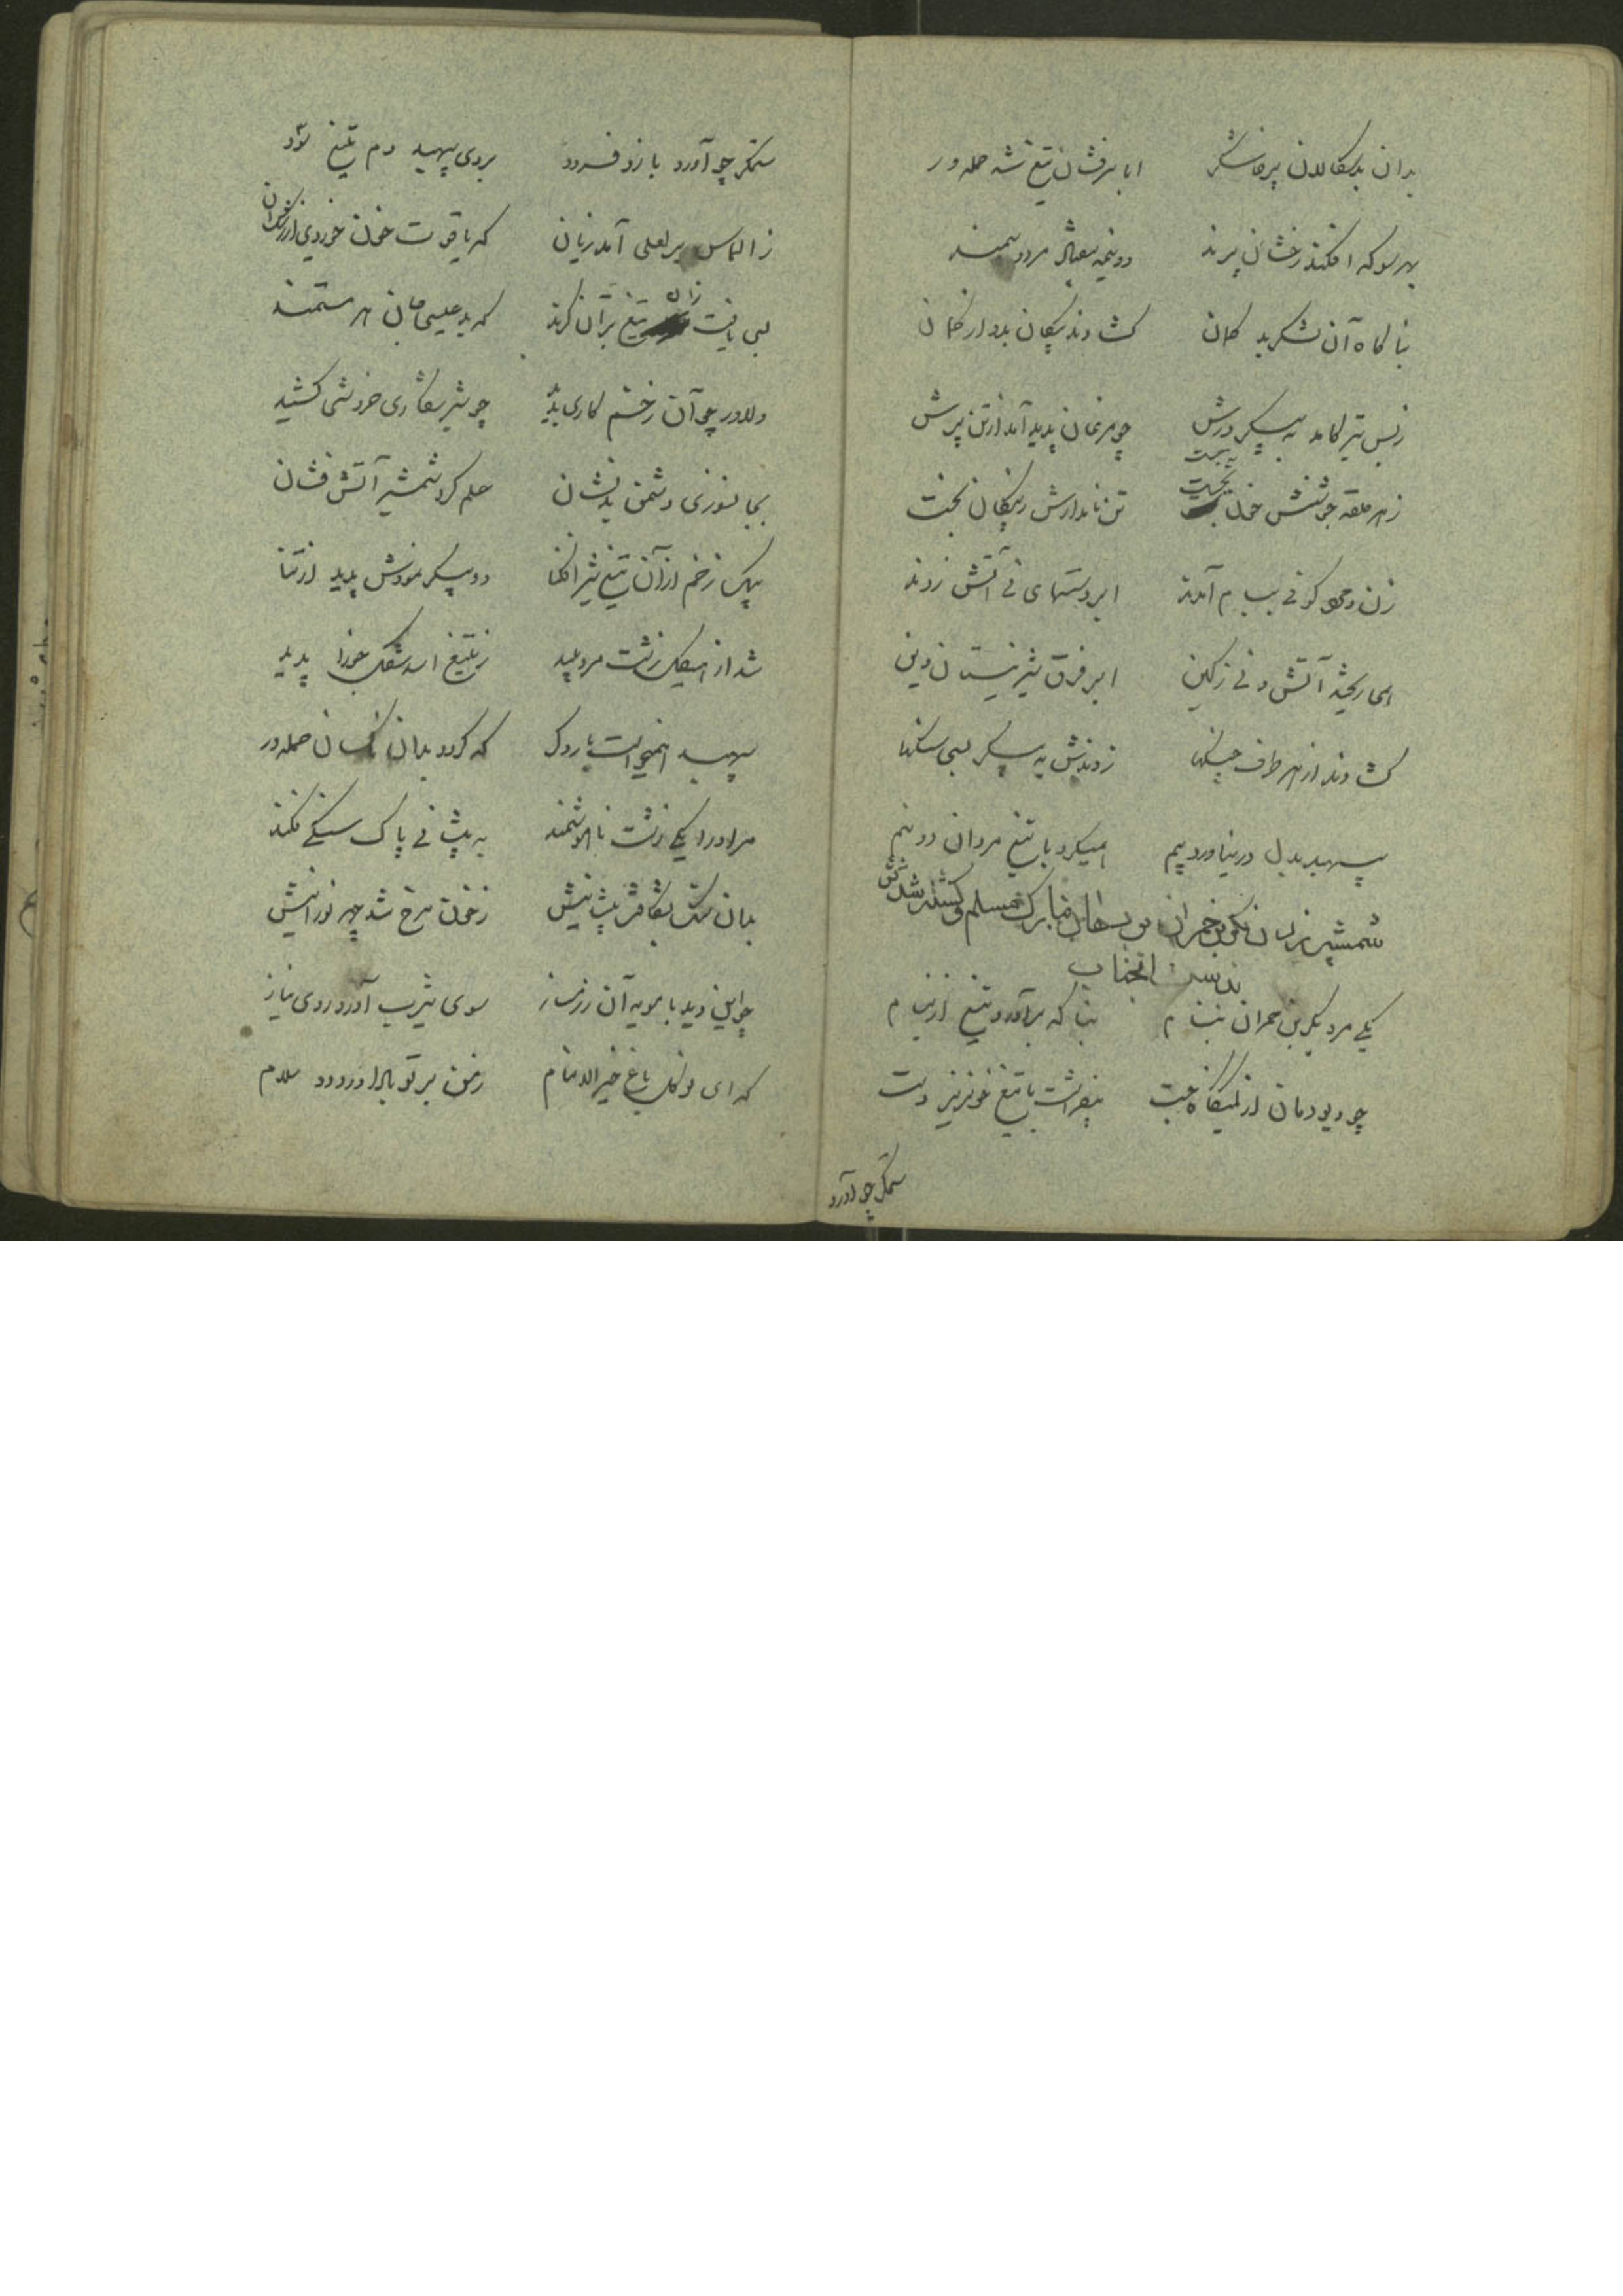 بدان بدسکالان پرخاشگر ابا سرفشان تیغ شد حمله ور
بهر سو که افکند رخشان پرند دو نیمه بیفتاد مرد و سمند
بناگاه آن لشکر بد گمان گشادند پیکان بدو از کمان
ز بس تیر کامد به پیکر درش چو مرغان پدید آمد از تن پرش
ز هر حلقه جوشنش خون بجست تن نامدارش ز پیکان بخست
زن و مرد کوفی ببام آمدند ابر دستهای نی آتش زدند
همی ریختند آتش و نی ز کین ابر فرق شیر نیستان دین
گشادند از هر طرف چنگها زدندش به پیکر بسی سنگها
سپهبد بدل در نیاورد بیم همیکرد با تیغ مردان دو نیم
شمشیر زدن بکر بن حمران بر لبهای مبارک مسلم و کشته شدنش
بدست آنجناب
یکی مرد بکر بن حمران بنام بناگه برآورد تیغ از نیام
چو دیو دمان از کمینگاه جست بیفراشت با تیغ خونریز دست
ستمگر چو آورد
ستمگر چو آورد بازو فرود بروی سپهبد دم تیغ سود
ز الماس بر لعلی آمد زیان که یاقوت خون خوردی از رشک آن
لبی یافت زان تیغ بران گزند که بد عیسی جان هر مستمند
دلاور چو آن زخم کاری بدید چو شیر شکاری خروشی کشید
بجانسوزی دشمن بدنشان علم کرد شمشیر آتش فشان
بیک زخم از آن تیغ شیر افکنا دو پیکر نمودش پدید از تنا
شد از هیکل زشت مرد پلید ز تیغ اسد شکل جوزا پدید
سپهبد همیخواست بار دگر که گردد بدان ناکسان حمله ور
مر او را یکی زشت ناهوشمند به پیشانی پاک سنگی فکند
بدان سنگ بشکافت پیشانیش ز خون سرخ شد چهر نورانیش
چو این دید با مویه آن رزمساز سوی یثرب آورد روی نیاز
که ای نوگل باغ خیر الانام ز من بر تو بادا درود و سلام